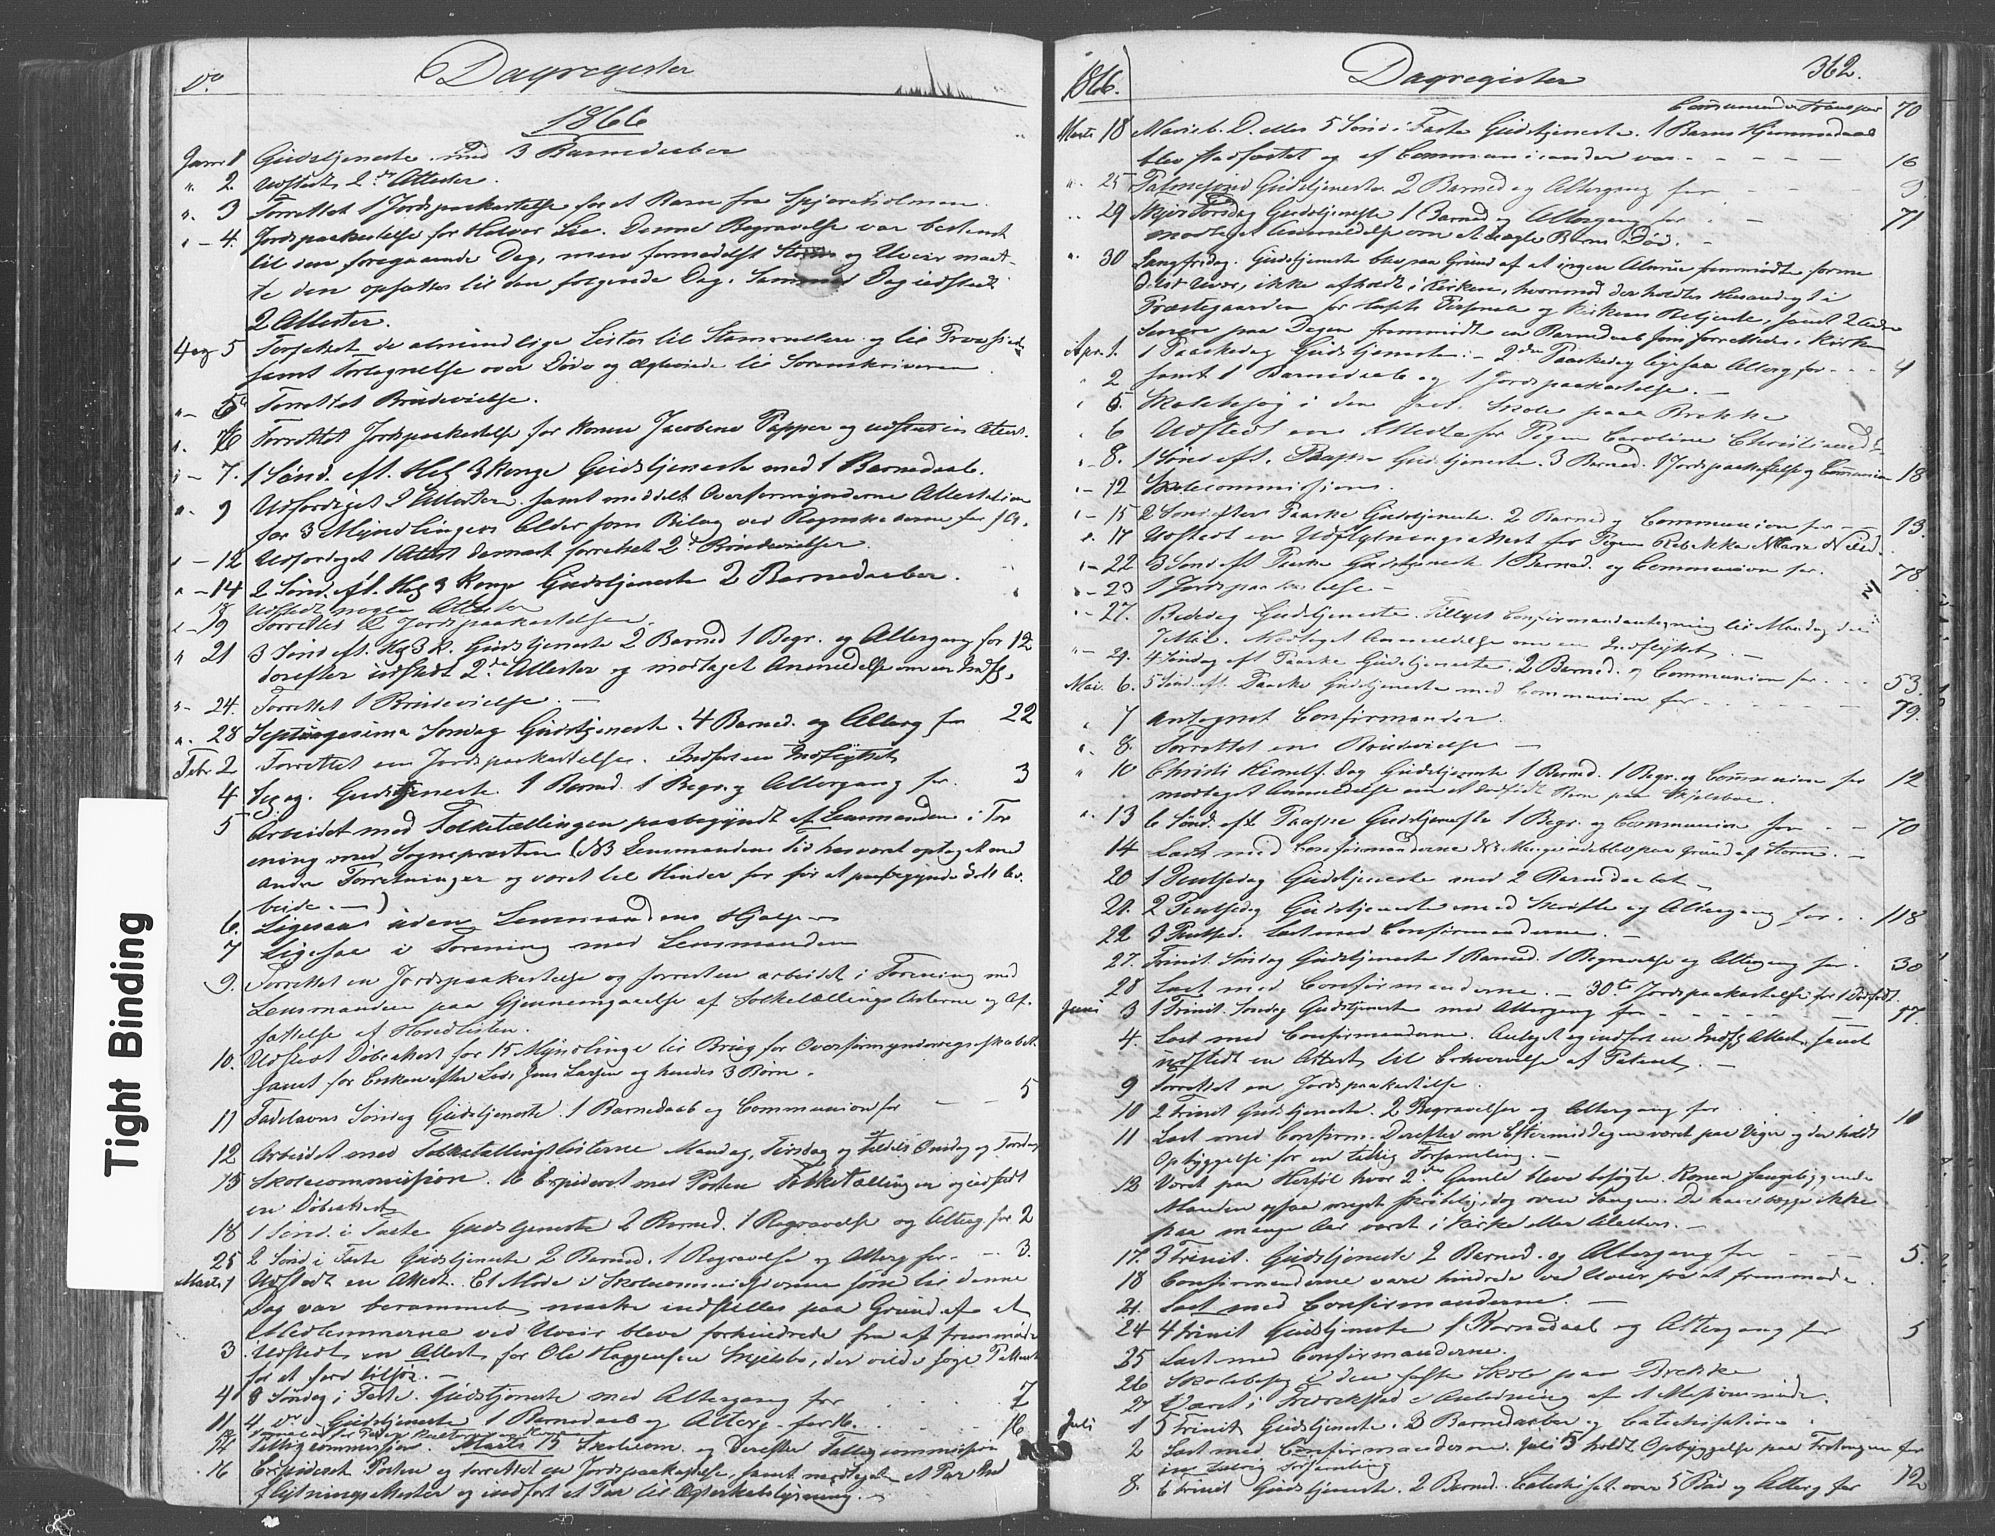 Dagregister
1866
Janr 1 Gudstjeneste med 3 Barnedaaber
" 2 Udstedt 2de Attester.
" 3 Forrettet 1 Jordspaakastelse for et Barn fra Spjærøholmen.
" - 4. Jordspaakastelse for Halvor Lie. Denne Begravelse var bestemt
til den foregaaende Dag, men formedelst Storm og Uveir maat-
te den opsættes til den følgende Dag. Samme Dag udstedt
2 Attester.
4 og 5 Forfattet de almindelige Lister til Stamrullen og til Provsiet
samt Fortegnelse over Døde og Ægteviede til Sorenskriveren
" - 5 Forrettet Brudevielse.
" 6 Forrettet Jordspaakastelse for Konen Jacobine Papper og udstedt en Attest.
" - 7. 1 Sønd. eft. Hel 3 Konge Gudstjeneste med 1 Barnedaab.
" 9 Udfærdiget 2 Attester samt meddelt Overformynderne Attestation
for 3 Myndlingers Alder som Bilag ved Regnskaberne
" - 12 Udfærdiget 1 Attest dernæst forrettet 2de Brudevielser
" - 14 2 Sønd. eft. Hel 3 Konge Gudstjeneste 2 Barnedaaber.
18 Udstedt nogen Attester
" - 19 Forrettet 2 Jordspaakastelser.
" 21 3 Sønd eft. H 3 K. Gudstjeneste 2 Barned 1 Begr. og Altergang for 12
derefter udstedt 2de Attester og modtaget Anmeldelse om en Indfl.
" - 24. Forrettet 1 Brudevielse. -
" 28 Septuagesima Søndag Gudstjeneste. 4 Barned. og Alterg for 22
Febr 2 Forrettet en Jordspaakastelse. Indført en Indflyttet
4 Gudstjeneste 1 Barned 1 Begr. og Altergang for 3
5 Arbeidet med Folketællingen paabegyndt af Lensmanden i For
ening med Sognepræsten (NB Lensmandens Tid har været optaget med
andre Forretninger og været til Hinder for før at paabegynde dette Ar-
beide. -)
6. Ligesaa uden Lensmandens Hjælp -
7 Ligesaa i Forening med Lensmanden
9. Forrettet en Jordspaakastelse og forresten arbeidet i Forening med
Lensmanden paa Gjennemgaaelse af Folketællings Listerne og Af-
fattelse af Hovedlisten.
10. Udstedt Døbeattest for 15 Myndlinge til Brug for Overformynderregnskabet
samt for Enken efter Jens Larsen og hendes 3 Børn.
11 Fastelavns Søndag Gudstjeneste. 1 Barnedaab og Communion for - - 5
12 Arbeidet med Folketællingslisterne Mandag, Tirsdag og tildels Onsdag og Torsdag
15 Skolecommission. 16 Expideret med Posten Folketællingen og indført
en Døbeattest
18 1 Sønd. i Faste Gudstjeneste 2 Barned. 1 Begravelse og Alterg for 2
25 2 Sønd i Faste Gudstjeneste 2 Barned. 1 Begravelse og Alterg for - - 3.
Marts 1 Udstedt en Attest. Et Møde i Skolecommissionen som til denne
Dag var berammet maatte indstilles paa Grund af at
Medlemmerne ved Uveir bleve forhindrede fra at fremmøde
3 Udstedt en Attest for Ole Haagensen Skjelsbo, der vilde søge Patent
for at føre tilsjøs. -
4 3 Søndag i Faste. Gudstjeneste med Altergang for 7
11 4 do Gudstjeneste 1 Barnedaab og Alterg. for 16. 16
14 Fattigcommission. Marts 15 Skolecom. og Derefter Fattigcommission
16 Expideret Posten og forrettet en Jordspaakastelse, samt modtaget et Par Ind
flytnings Attester og indført et Par til Ægteskabslysning. -
1866. Dagregister 362.
Communicanter Transport 70
Marts 18 Mariæb. D. eller 5 Sønd i Faste Gudstjeneste. 1 Barns Hjemmedaab
blev stadfæstet og af Communicander var - - - - - 16
" 25 Palmesønd Gudstjeneste 2 Barned og Altergang for - - 3
" 29 Skjærtorsdag Gudstjeneste 1 Barned og Altergang for - - 71
modtaget Anmeldelse om et Barns Død. -
" 30 Langfridag. Gudstjeneste blev paa Grund af at ingen Almue fremmødte forme
delst Uveir, ikke afholdt i Kirken, hvorimod der holdtes Husandagt i
Præstegaarden for dets Personale og Kirkens Betjente, samt 2 Andre
Senere paa Dagen fremmødte en Barnedaab som forrettedes i Kirken
Apr. 1. 1 Paaskedag Gudstjeneste. - 2den Paaskedag ligesaa Alterg for - - - 4
" 2 samt 1 Barnedaab og 1 Jordspaakastelse. -
" 5. Skolebesøg i den fast. Skole paa Brekke
" 6 Udstedt en Attest for Pigen Caroline Christiansd.
" - 8. 1 Sønd eft. Paaske Gudstjeneste. 3 Barned. 1 Jordspaakastelse og Communion 18
" - 12 Skolecommission.
" - 15 2 Sønd efter Paaske Gudstjeneste. 2 Barned og Communion for - 13.
" 17 Udstedt en Udflytningsattest for Pigen Rebekka Maria Nilsd.
" - 22 3 Sønd eft Paaske Gudstjeneste 1 Barned. og Communion for. 78.
" - 23 1 Jordspaakastelse -
" - 27. Bededag Gudstjeneste. Tillyst Confirmandantegning til Mandag den
7 Mai. Modtaget Anmeldelse om en Indflyttet. -
" - 29. 4 Søndag eft Paaske Gudstjeneste. 2 Barned. og Communion for - - - 53.
Mai. 6. 5 Sønd. eft. Paaske Gudstjeneste med Communion for - - - 79.
" 7 Antegnet Confirmander.
" 8. Forrettet en Brudevielse -
" 10 Christi Himelf. Dag Gudstjeneste 1 Barned. 1 Begr. og Communion for 12
modtaget Anmeldelse om et dødfødt Barn paa Skjelsboe.
" 13 6 Sønd. eft Paaske Gudstjeneste 1 Begr. og Communion for - - 70
14 Læst med Confirmanderne NB. Mange udebleve paa Grund af Storm. -
20 1 Pintsedag Gudstjeneste med 2 Barnedaaber -
21. 2 Pintsedag Gudstjeneste med Skrifte og Altergang for - - 118
22 3 Pintsed. Læst med Confirmanderne. -
27. Trinit. Søndag Gudstjeneste 1 Barned. 1 Begravelse og Altergang for - 30
28 Læst med Confirmanderne. - 30te Jordspaakastelse for 1 Dødfødt.
Juni 3 1 Trinit. Søndag Gudstjeneste med Altergang for - - - 17.
4. Læst med Confirmanderne. Anlagt og indført en Indfl Attest, samt
udstedt en Attest til Erhvervelse af Patent. -
9 Forrettet en Jordspaakastelse.
10 2 Trinit Gudstjeneste. 2 Begravelser og Altergang for 10
11 Læst med Confirm. Derefter om Eftermiddagen været paa Viger og der holdt
Opbyggelse for en talrig Forsamling. -
12 Været paa Herføl hvor 2de Gamle bleve besøgte. Konen sengeliggende
Manden ogsaa meget skrøbelig, dog oven Sengen. De have begge ikke
paa mange Aar været i Kirke eller Alters. -
17. 3 Trinit. Gudstjeneste 2 Barned. og Altergang for - - - 5.
18 Confirmanderne vare hindrede ved Uveir fra at fremmøde.
21. Læst med Confirmanderne. -
24 4 Trinit Gudstjeneste 1 Barnedaab og Altergang for 5
25 Læst med Confirmanderne.
26 Skolebesøg i den faste Skole paa Brekke
27 Været i Fredrikstad i Anledning af et Mission møde.
Juli 1 5 Trinit Gudstjeneste. 3 Barnedaaber og Catechisation.
2 Læst med Confirmanderne. Juli 5 holdt Opbyggelse paa for
en talrig Forsamling
8. 6 Trinit Gudstjeneste. 2 Barned. Catechisat. over 5 Bud og Alterg for 12
Tight Binding